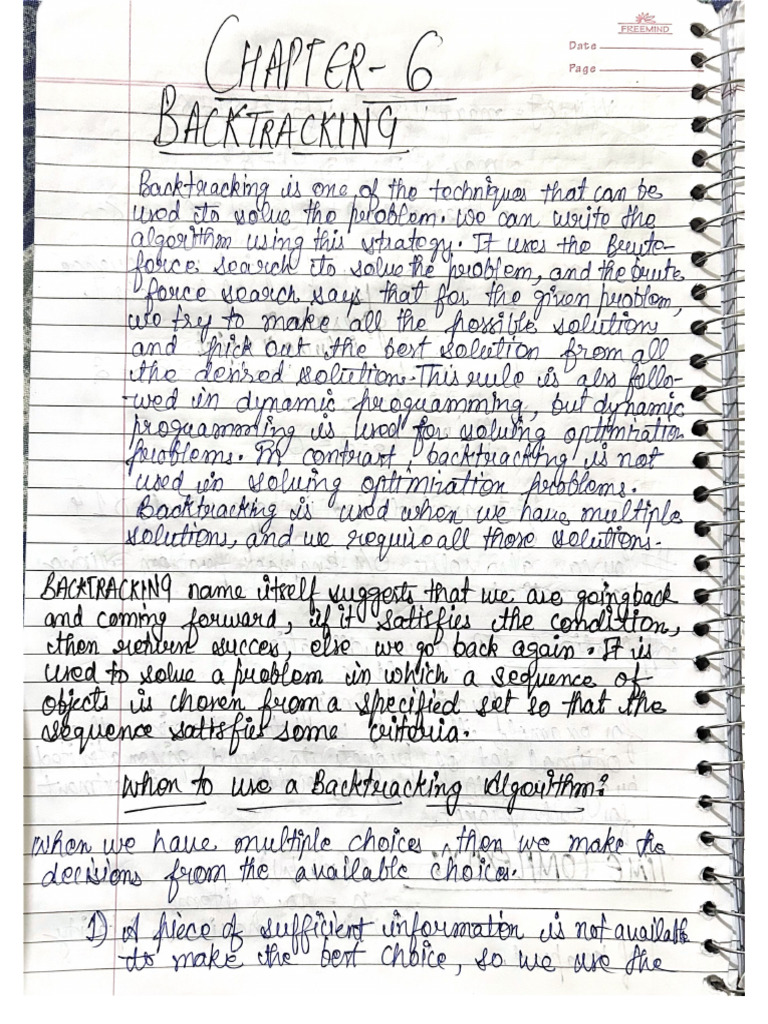 FREEMIND
Date
Page
CHAPTER-6
BACKTRACKING
Backtracking is one of the techniques that can be
used to solve the problem. we can write the
algorithm using this strategy. It uses the Brute-
force search to solve the problem, and the brute
force search says that for the given problem,
we try to make all the possible solution
and pick out the best solution from all
the desired solution. This rule is also follo-
wed in dynamic programming, but dynamic
programming is used for solving optimization
problems. In contrast, backtracking is not
used in solving optimization problems.
Backtracking is used when we have multiple
solutions, and we require all those solutions.
BACKTRACKING name itself suggests that we are going back
and coming forward, if it satisfies the condition,
then return success, else we go back again. It is
used to solve a problem in which a sequence of
objects is chosen from a specified set so that the
sequence satisfies some criteria.
When to use a Backtracking Algorithm?
When we have multiple choices, then we make the
decisions from the available choices.
1) A piece of sufficient information is not available
to make the best choice, so we use the